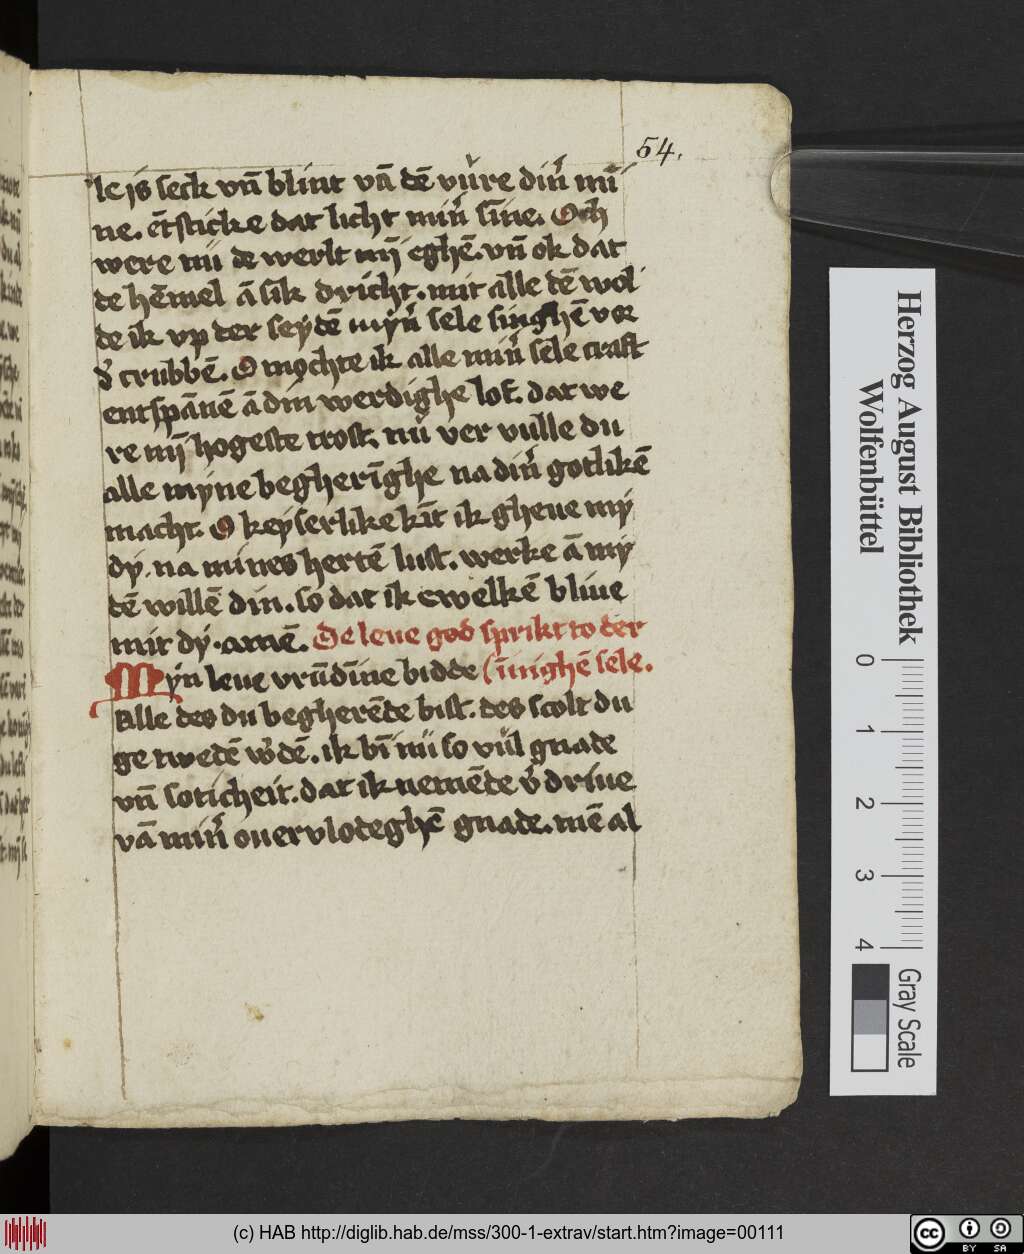 54.
le is seck vn̄ blint vā dē vu̇re din̄ mī
ne. ētsticke dat licht min̄ sīne. Och
were nu de werlt mȳ eghē. vn̄ ok dat
de hēmel ā sik dricht. mit alle dē wol
de ik vp der seydē myn̄ sele singhē vor
d' crubbē. O mochte ik alle min̄ sele craft
entspānē ā din werdighe lof. dat we
re mȳ hogeste trost. nu ver vulle du
alle myne begherīghe na din̄ gotlikē
macht. O keyserlike kīt ik gheue my
dy. na mines hertē lust. werke ā my
dē willē din. so dat ik ewelkē bliue
mit dy. amē. De leue god sprikt to der
Myn leue vrūdīne bidde (īnighē sele.
Alle des du begherēde bist. des scolt du
ge twedē w'dē. ik bī nu so vul gnade
vn̄ soticheit. dat ik nemēde v' driue
vā min̄ ouervlodeghē gnade. mē al
Herzog August Bibliothek
Wolfenbüttel
0
1
2
3
4
Gray Scale
(c) HAB http://diglib.hab.de/mss/300-1-extrav/start.htm?image=00111
cc
BY SA